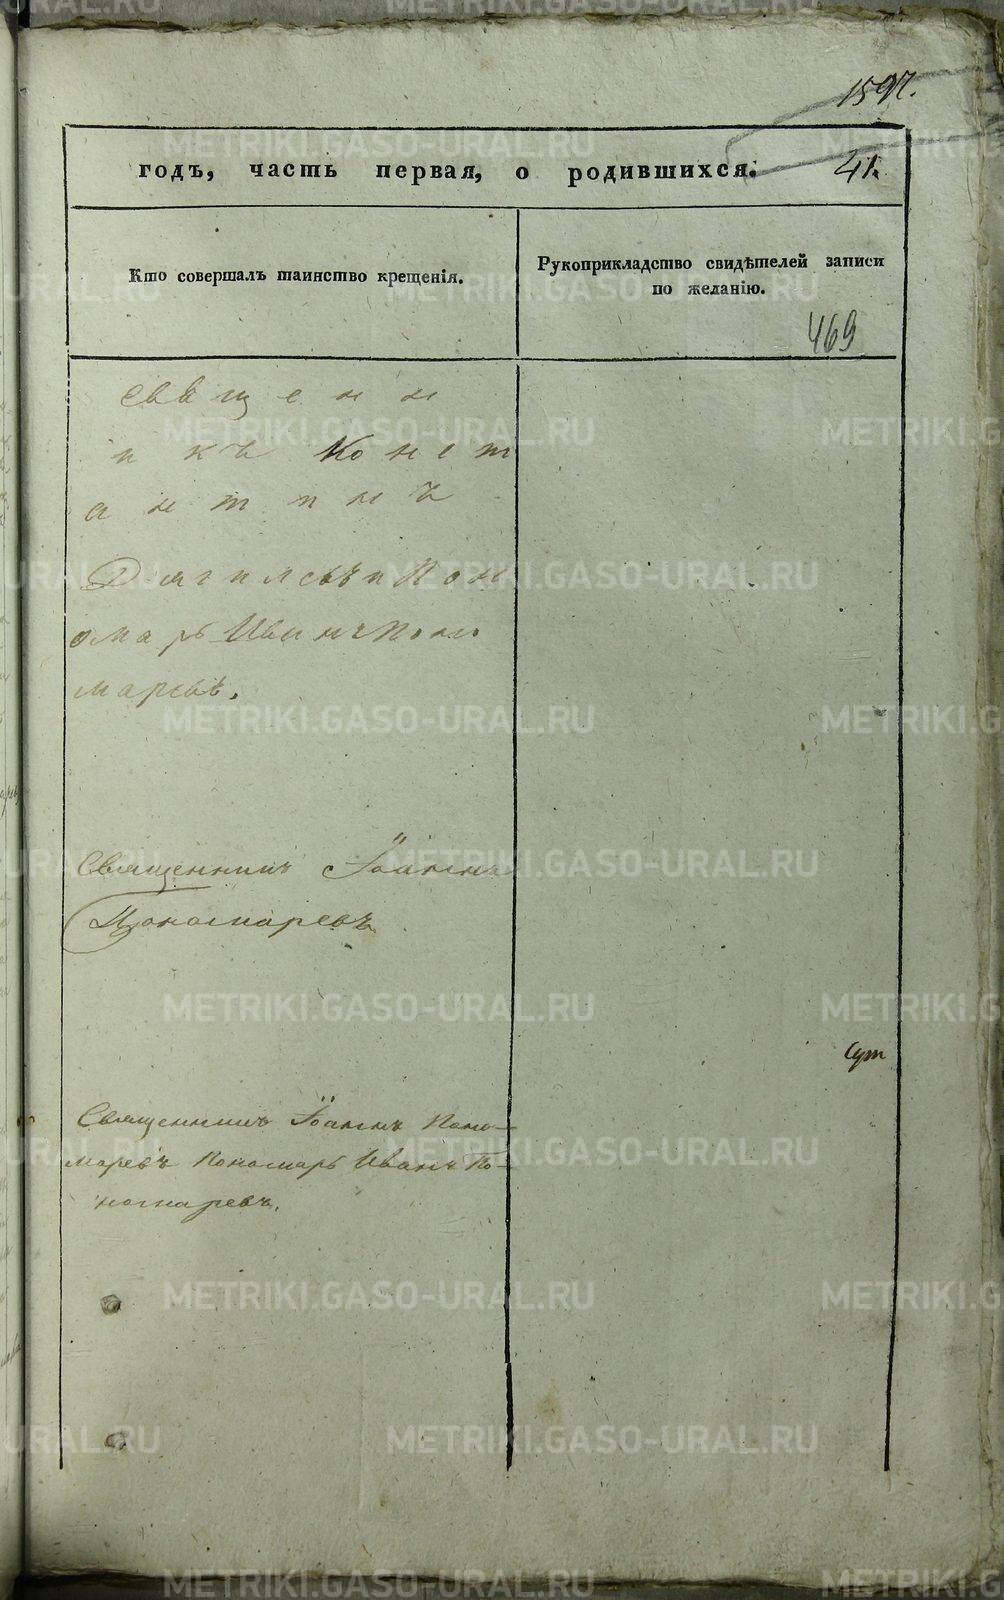 1597.
годъ, часть первая, о родившихся. 41.
Кто совершалъ таинство крещенія.
Рукоприкладство свидѣтелей записи
по желанію.
469
Свѣщенн
икъ Конст
антинъ
Дягилевъ и Пон
омарь Иванъ Поно
маревъ.
Священникъ Іоаннъ
Пономаревъ
Священникъ Іоаннъ Поно-
маревъ Пономарь Иванъ По-
номаревъ.
METRIKI.GASO-URAL.RU